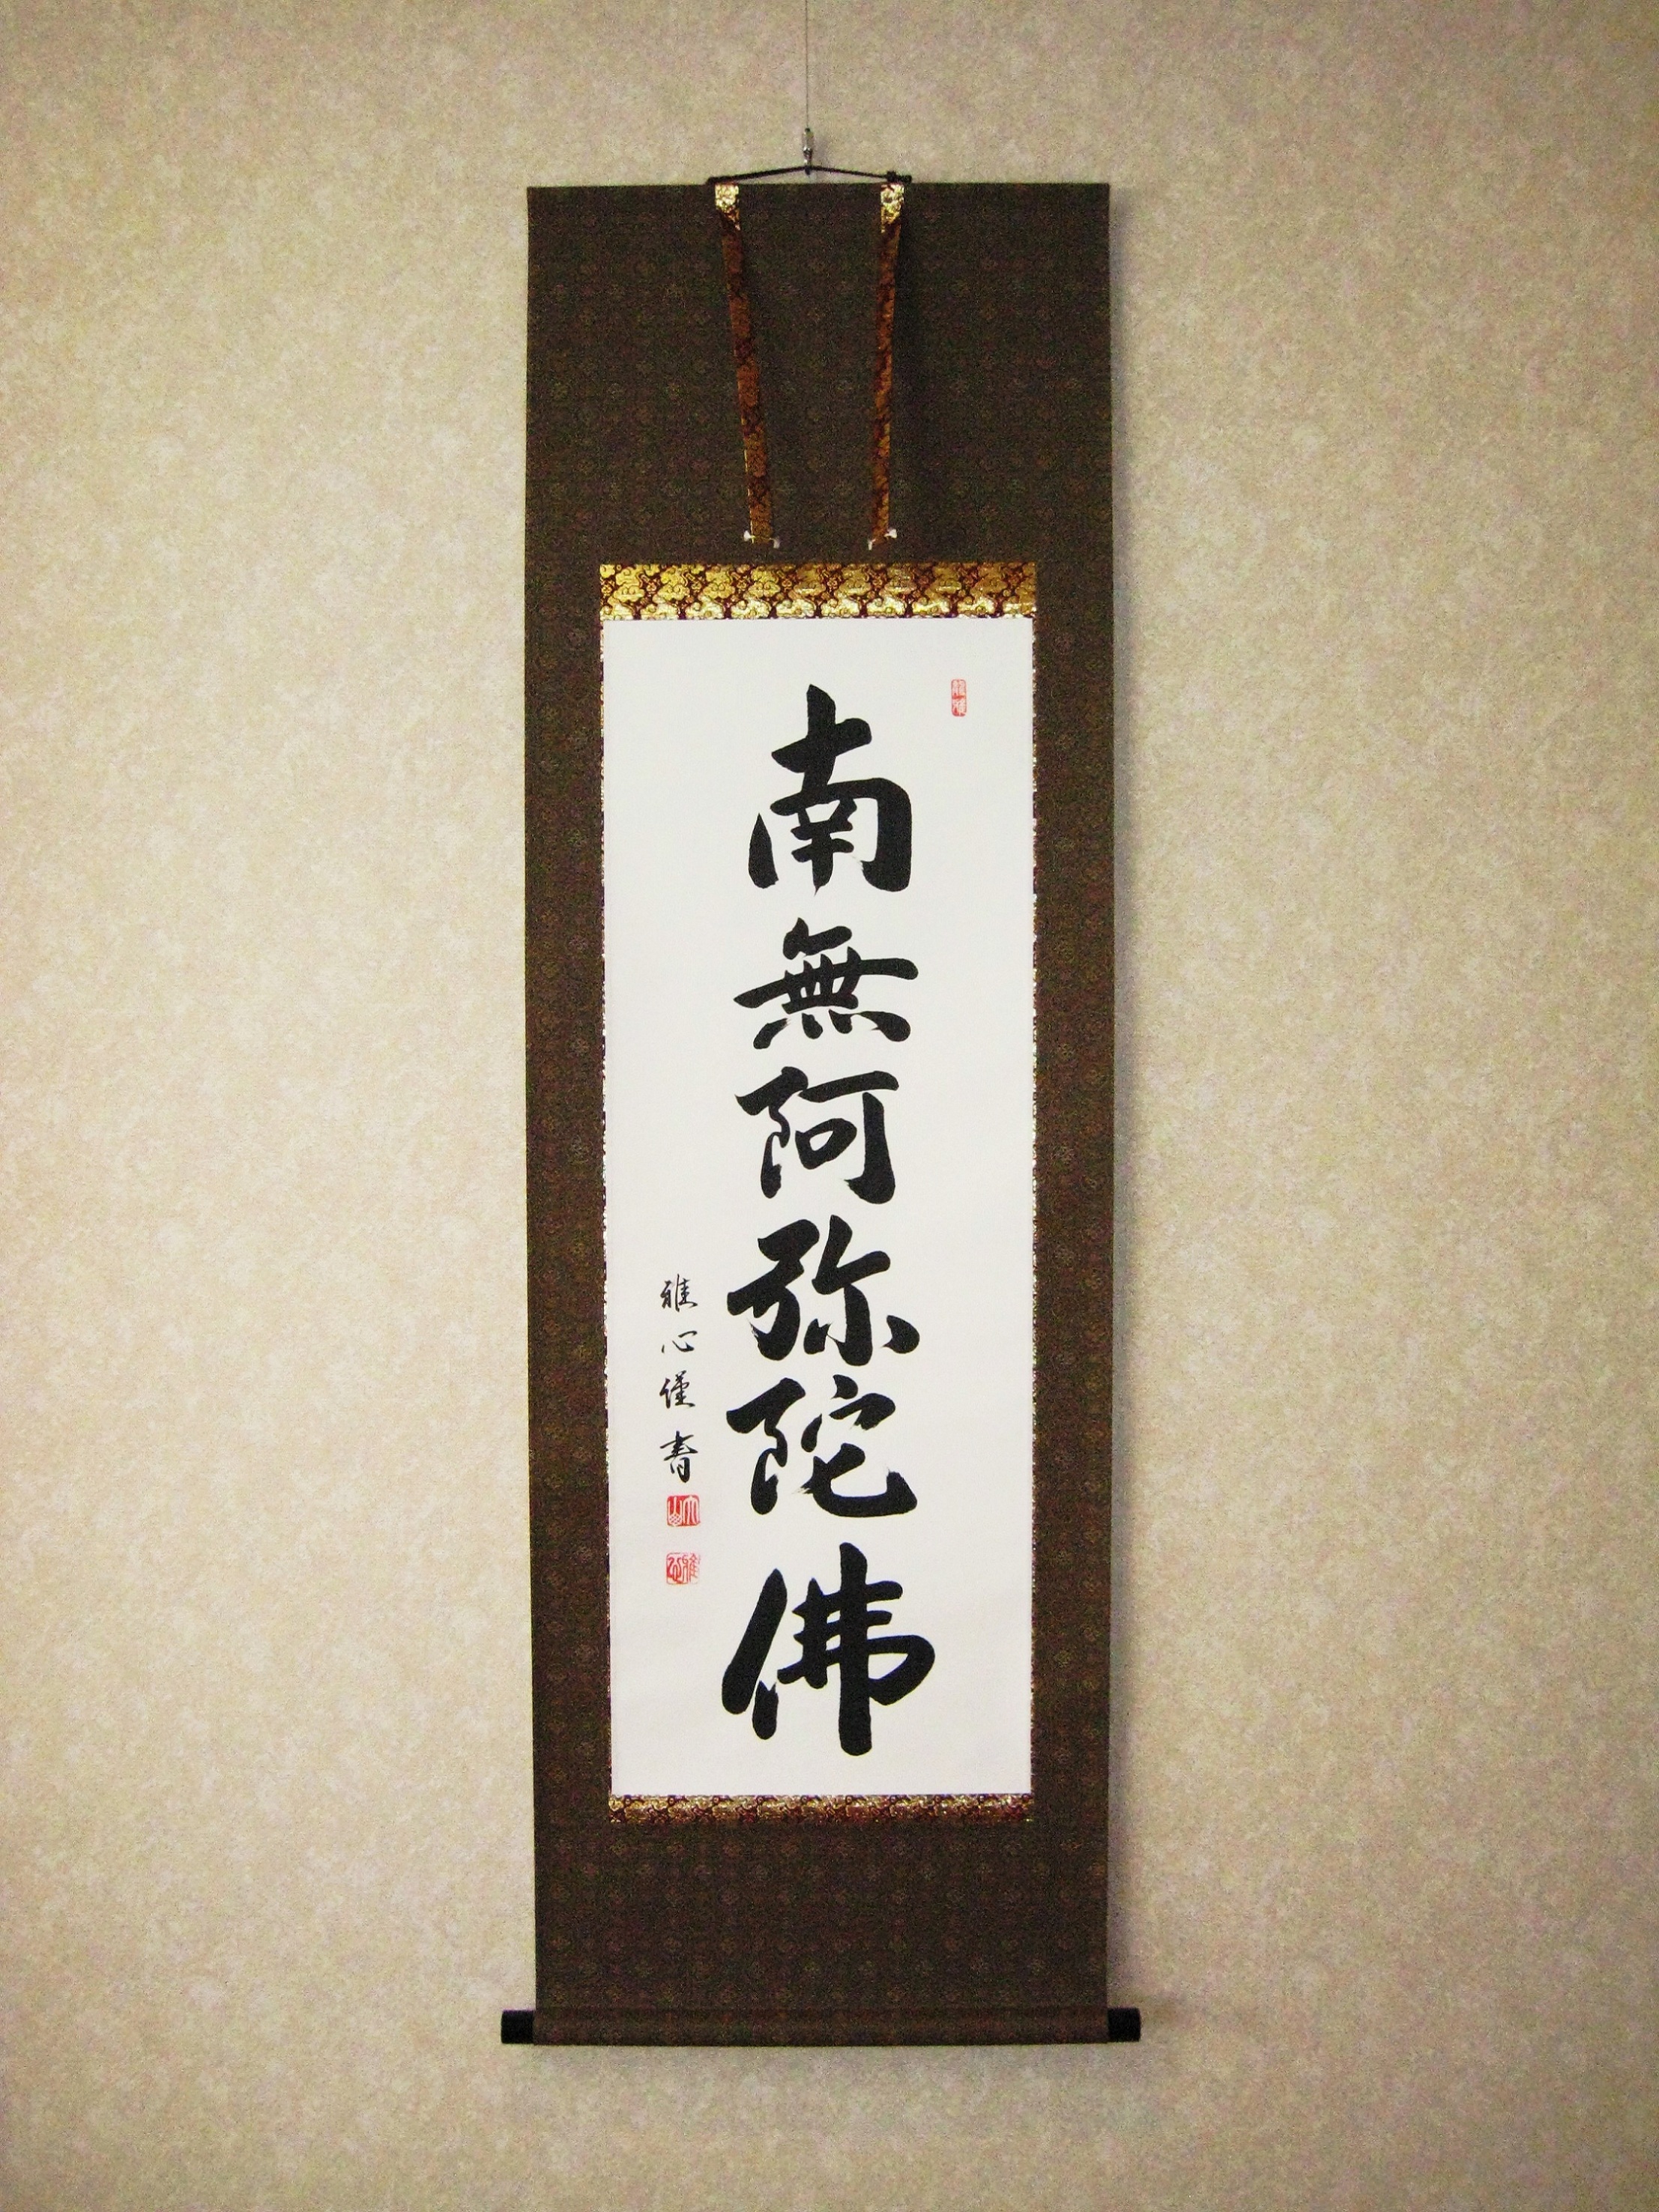 南無阿弥陀佛
雅心僅書